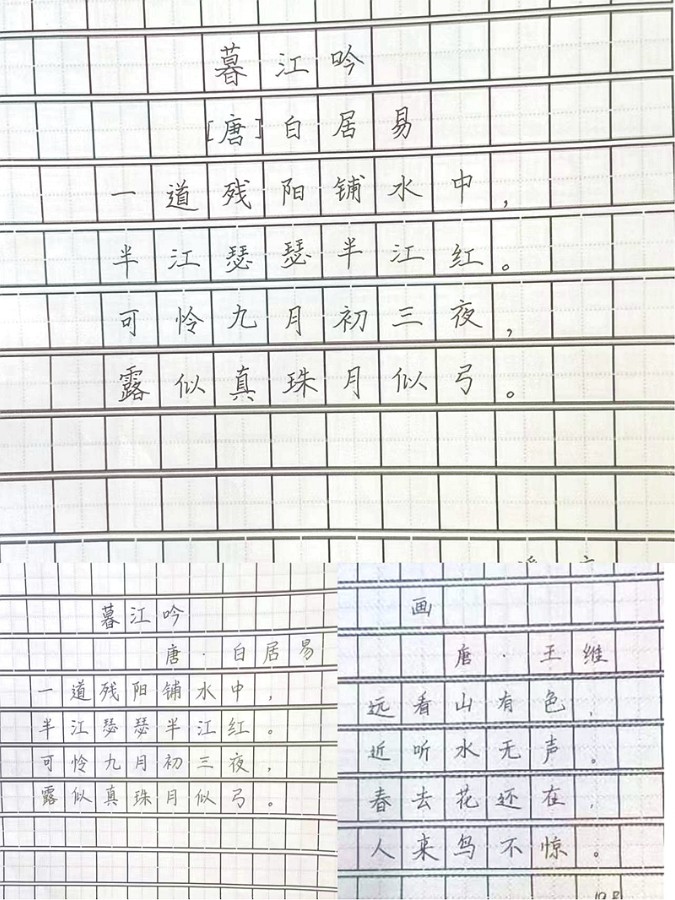 暮江吟
[唐]白居易
一道残阳铺水中，
半江瑟瑟半江红。
可怜九月初三夜，
露似真珠月似弓。
暮江吟
唐·白居易
一道残阳铺水中，
半江瑟瑟半江红。
可怜九月初三夜，
露似真珠月似弓。
画
唐·王维
远看山有色，
近听水无声。
春去花还在，
人来鸟不惊。